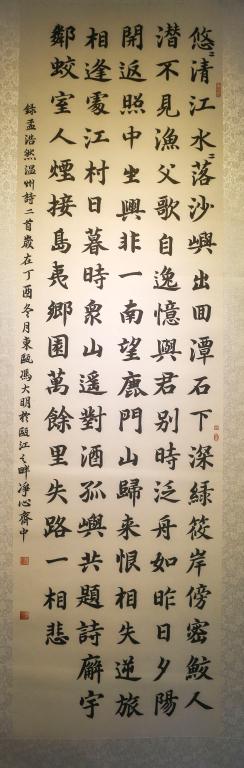 悠〻清江水〻落沙嶼出回潭石下深緑筱岸傍密鮫人
潛不見漁父歌自逸憶與君别時泛舟如昨日夕陽
開返照中坐興非一南望鹿門山歸来恨相失逆旅
相逢處江村日暮時衆山遥對酒孤嶼共題詩廨宇
鄰蛟室人煙接島夷鄉園萬餘里失路一相悲
錄孟浩然温州詩二首歲在丁酉冬月東甌馮大明於甌江之畔淨心齋中